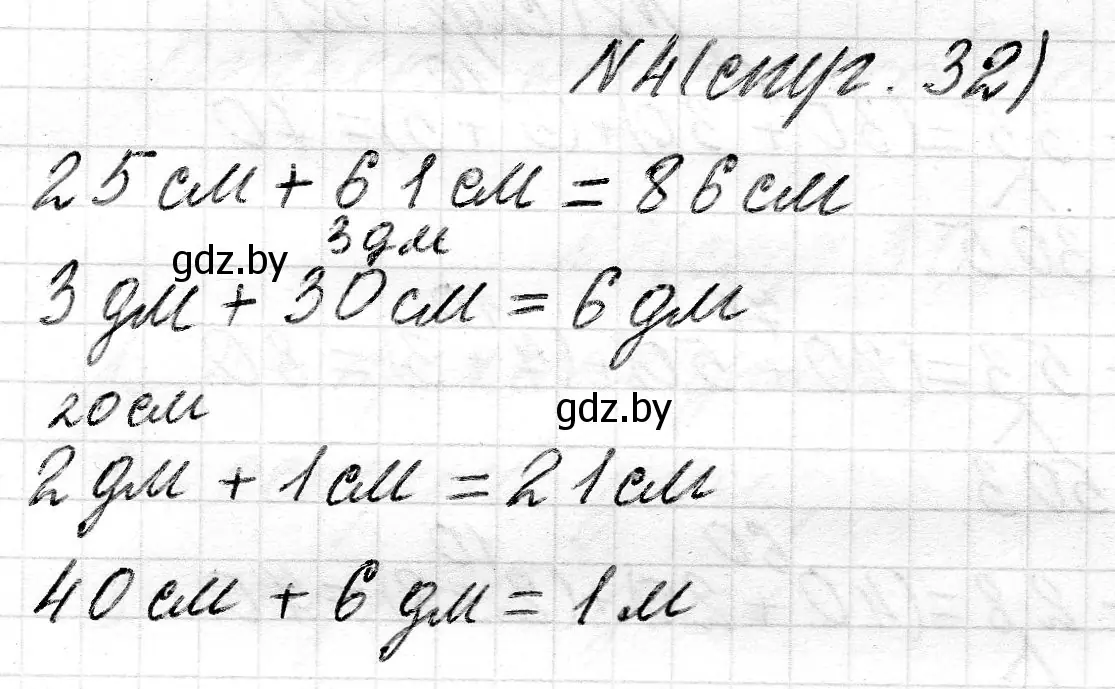 N4(стр. 32)
25см + 61см = 86см
3дм
gdz.by
3дм + 30см = 6дм
20см
gdz.by
2дм + 1см = 21см
40см + 6дм = 1м